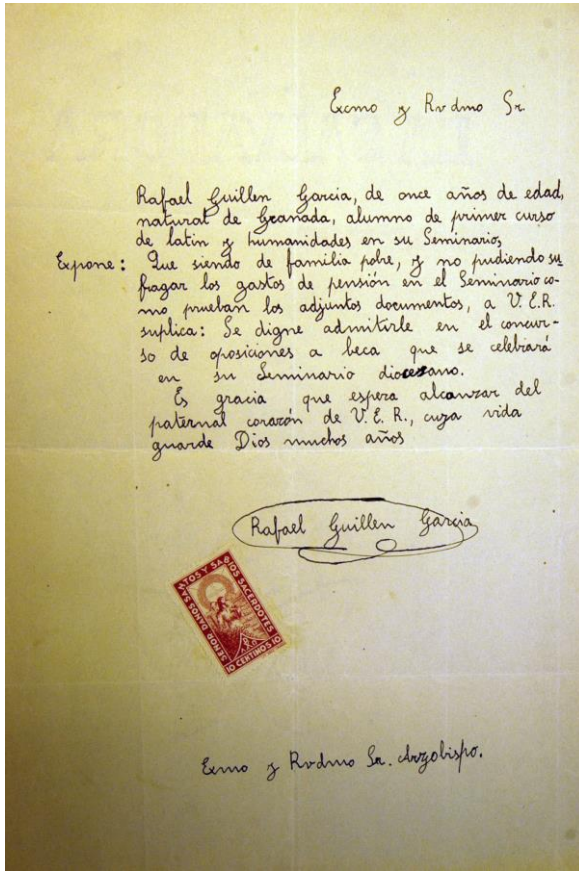 Excmo y Rvdmo Sr.
Rafael Guillen Garcia, de once años de edad,
natural de Granada, alumno de primer curso
de latin y humanidades en su Seminario,
Expone: Que siendo de familia pobre, y no pudiendo su
fragar los gastos de pensión en el Seminario co-
mo prueban los adjuntos documentos, a V.E.R.
suplica: Se digne admitirle en el concur-
so de oposiciones a beca que se celebrará
en su Seminario diocesano.
Es gracia que espera alcanzar del
paternal corazón de V.E.R., cuya vida
guarde Dios muchos años
Rafael Guillen Garcia
SEÑOR DANOS SANTOS Y SABIOS SACERDOTES
10 CENTIMOS 10
Exmo y Rvdmo Sr. Arzobispo.